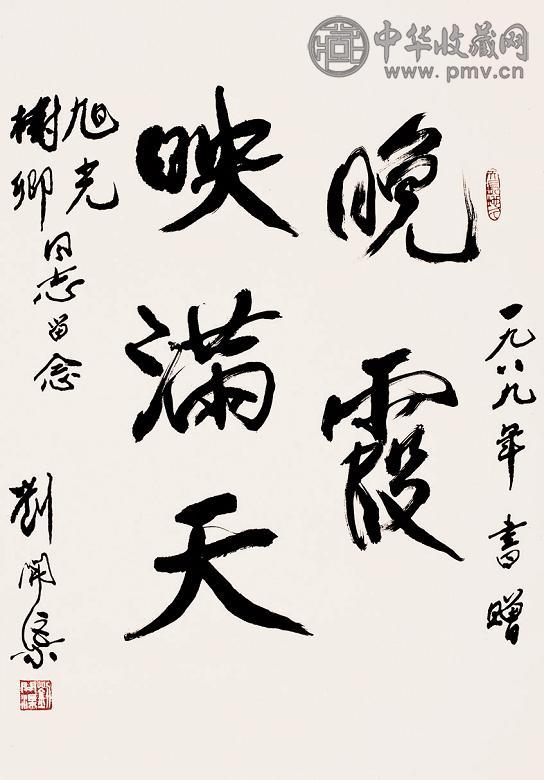 中华收藏网
www.pmv.cn
一九八九年书赠
晚霞
映满天
旭光
樹卿同志留念
劉開渠